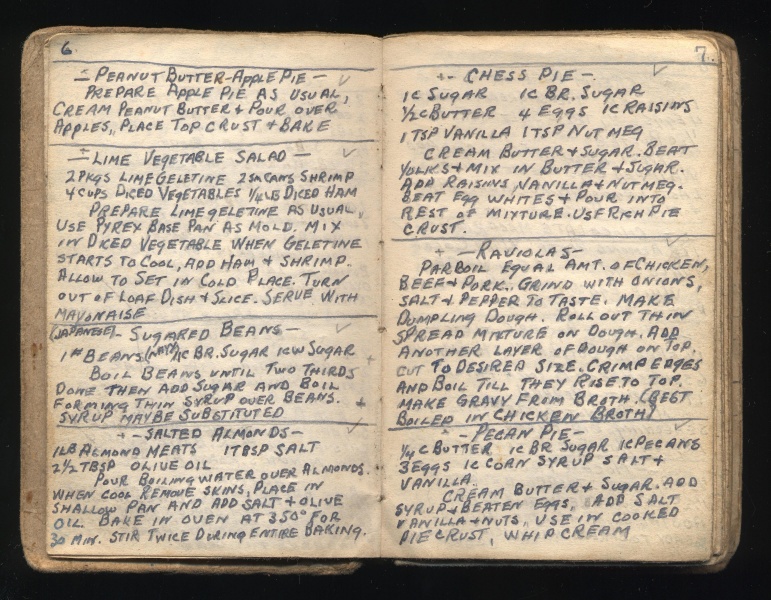 6.
- PEANUT BUTTER-APPLE PIE -
PREPARE APPLE PIE AS USUAL,
CREAM PEANUT BUTTER & POUR OVER
APPLES, PLACE TOP CRUST & BAKE
- LIME VEGETABLE SALAD -
2 PKGS LIME GELETINE 2 SM CANS SHRIMP
4 CUPS DICED VEGETABLES 1/4 LB DICED HAM
PREPARE LIME GELETINE AS USUAL,
USE PYREX BASE PAN AS MOLD. MIX
IN DICED VEGETABLE WHEN GELETINE
STARTS TO COOL, ADD HAM & SHRIMP.
ALLOW TO SET IN COLD PLACE. TURN
OUT OF LOAF DISH & SLICE. SERVE WITH
MAYONAISE
(JAPANESE) - SUGARED BEANS -
1# BEANS (NAVY) 1C BR. SUGAR 1C W SUGAR
BOIL BEANS UNTIL TWO THIRDS
DONE THEN ADD SUGAR AND BOIL
FORMING THIN SYRUP OVER BEANS.
SYRUP MAY BE SUBSTITUTED
- SALTED ALMONDS -
1LB ALMOND MEATS 1 TBSP SALT
2 1/2 TBSP OLIVE OIL
POUR BOILING WATER OVER ALMONDS.
WHEN COOL REMOVE SKINS, PLACE IN
SHALLOW PAN AND ADD SALT & OLIVE
OIL BAKE IN OVEN AT 350° FOR
30 MIN. STIR TWICE DURING ENTIRE BAKING.
7.
- CHESS PIE -
1C SUGAR 1C BR. SUGAR
1/2 C BUTTER 4 EGGS 1C RAISINS
1 TSP VANILLA 1 TSP NUTMEG
CREAM BUTTER & SUGAR. BEAT
YOLKS & MIX IN BUTTER & SUGAR.
ADD RAISINS, VANILLA & NUTMEG.
BEAT EGG WHITES & POUR INTO
REST OF MIXTURE. USE RICH PIE
CRUST.
- RAVIOLAS -
PARBOIL EQUAL AMT. OF CHICKEN,
BEEF & PORK. GRIND WITH ONIONS,
SALT & PEPPER TO TASTE. MAKE
DUMPLING DOUGH. ROLL OUT THIN
SPREAD MIXTURE ON DOUGH. ADD
ANOTHER LAYER OF DOUGH ON TOP.
CUT TO DESIRED SIZE. CRIMP EDGES
AND BOIL TILL THEY RISE TO TOP.
MAKE GRAVY FROM BROTH. (BEST
BOILED IN CHICKEN BROTH)
- PECAN PIE -
1/4 C BUTTER 1C BR SUGAR 1C PECANS
3 EGGS 1C CORN SYRUP SALT &
VANILLA.
CREAM BUTTER & SUGAR. ADD
SYRUP & BEATEN EGGS, ADD SALT
VANILLA & NUTS. USE IN COOKED
PIE CRUST, WHIP CREAM